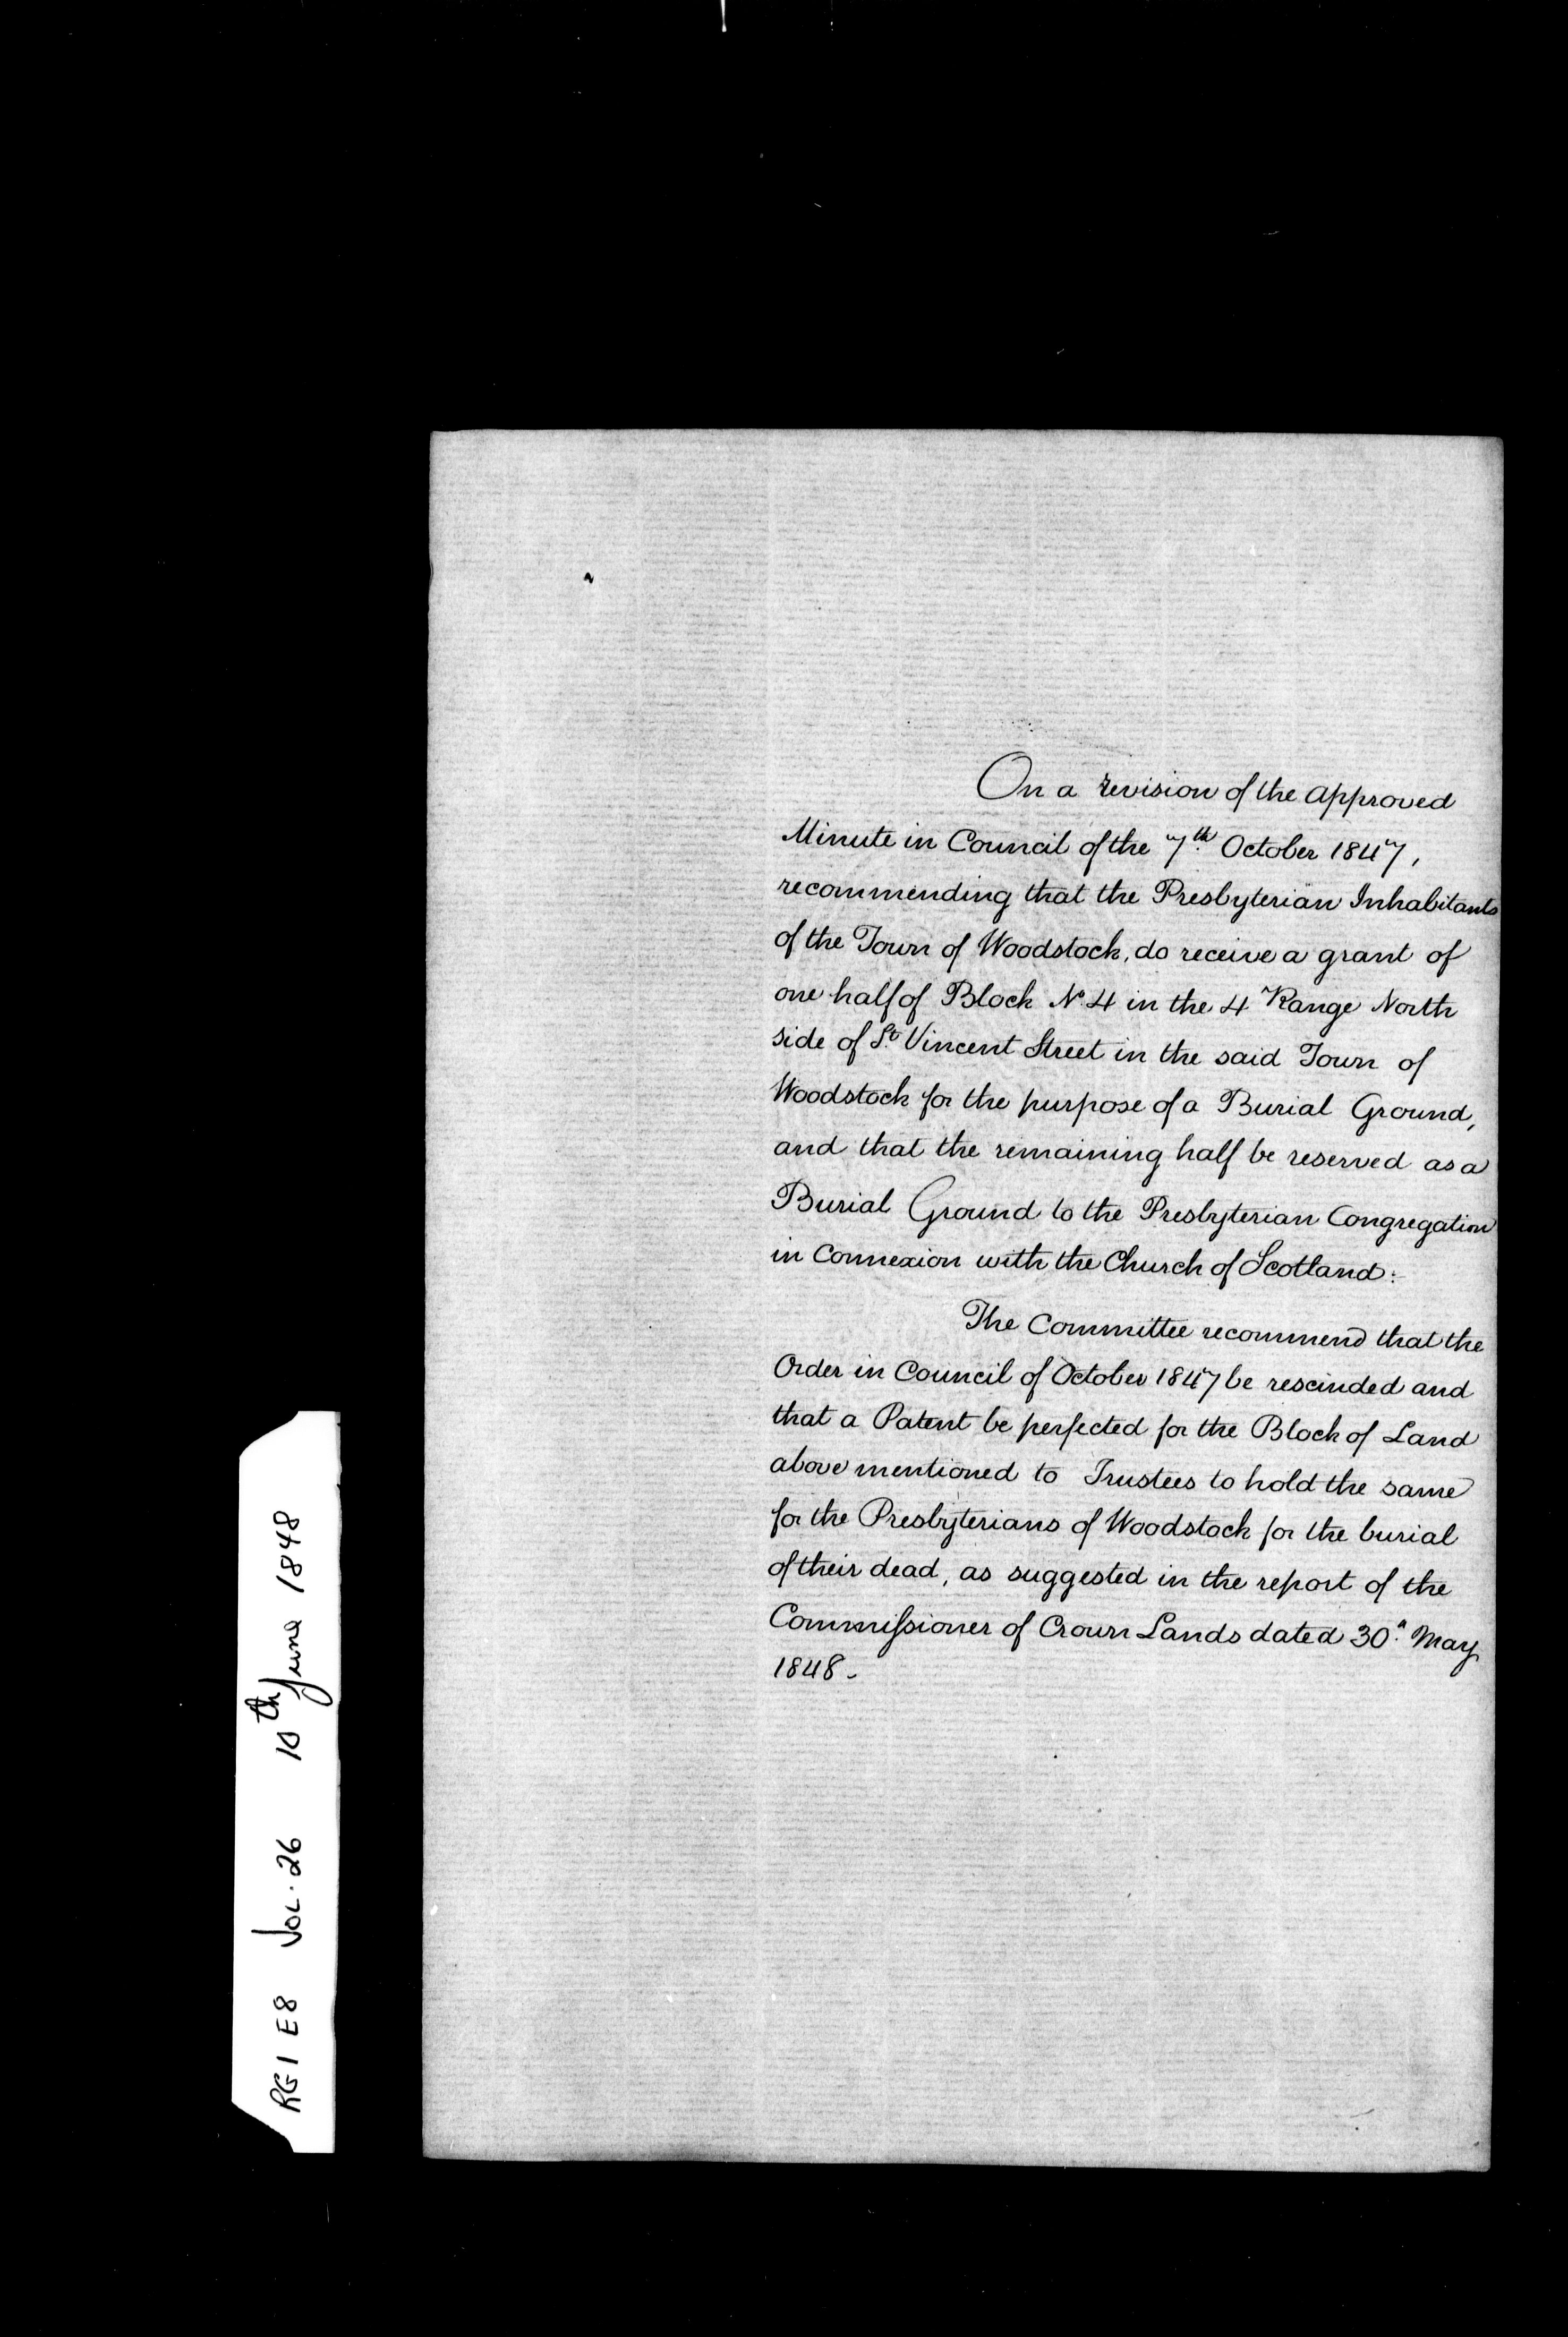 On a revision of the approved
Minute in Council of the 7th October 1847,
recommending that the Presbyterian Inhabitants
of the Town of Woodstock, do receive a grant of
one half of Block No 4 in the 4 Range North
side of St Vincent Street in the said Town of
Woodstock for the purpose of a Burial Ground,
and that the remaining half be reserved as a
Burial Ground to the Presbyterian Congregation
in Connexion with the Church of Scotland:
The Committee recommend that the
Order in Council of October 1847 be rescinded and
that a Patent be perfected for the Block of Land
above mentioned to Trustees to hold the same
for the Presbyterians of Woodstock for the burial
of their dead, as suggested in the report of the
Commissioner of Crown Lands dated 30th May
1848.
RG1 E8 Vol. 26 10th June 1848